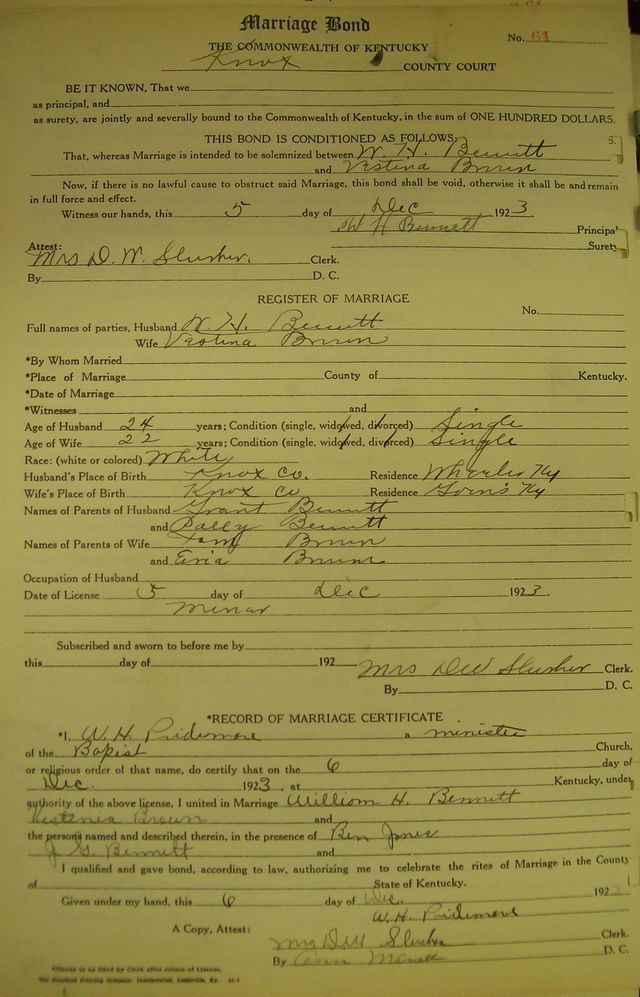 Marriage Bond
No. 61
THE COMMONWEALTH OF KENTUCKY
Knox COUNTY COURT
BE IT KNOWN, That we
as principal, and
as surety, are jointly and severally bound to the Commonwealth of Kentucky, in the sum of ONE HUNDRED DOLLARS.
THIS BOND IS CONDITIONED AS FOLLOWS:
That, whereas Marriage is intended to be solemnized between W. H. Bennett
and Vestina Brown
Now, if there is no lawful cause to obstruct said Marriage, this bond shall be void, otherwise it shall be and remain
in full force and effect.
Witness our hands, this 5 day of Dec 1923.
W H Bennett Principal
Surety
Attest:
Mrs D. W. Slusher. Clerk.
By D. C.
REGISTER OF MARRIAGE
No.
Full names of parties, Husband W. H. Bennett
Wife Vestina Brown
*By Whom Married
*Place of Marriage County of Kentucky.
*Date of Marriage
*Witnesses and
Age of Husband 24 years; Condition (single, widowed, divorced) Single
Age of Wife 22 years; Condition (single, widowed, divorced) Single
Race: (white or colored) White
Husband's Place of Birth Knox Co. Residence Wheeler Ky
Wife's Place of Birth Knox Co Residence Ky
Names of Parents of Husband Grant Bennett
and Polly Bennett
Names of Parents of Wife Tom Brown
and Evia Brown
Occupation of Husband
Date of License 5 day of Dec 1923.
Subscribed and sworn to before me by
this day of 192 Mrs D W Slusher Clerk.
By D. C.
*RECORD OF MARRIAGE CERTIFICATE
*I, W. H. Pridemore a minister
of the Bapist Church,
or religious order of that name, do certify that on the 6 day of
Dec. 1923, at Kentucky, under
authority of the above license, I united in Marriage William H. Bennett
Vestenia Brown and
the persons named and described therein, in the presence of Ben Jones
J. G. Bennett and
I qualified and gave bond, according to law, authorizing me to celebrate the rites of Marriage in the County
of State of Kentucky.
Given under my hand, this 6 day of Dec. 192
W. H. Pridemore
A Copy, Attest:
Mrs D W Slusher Clerk.
By D. C.
*Blanks to be filled by Clerk after return of License.
The Standard Printing Company, Incorporated, Louisville, Ky.